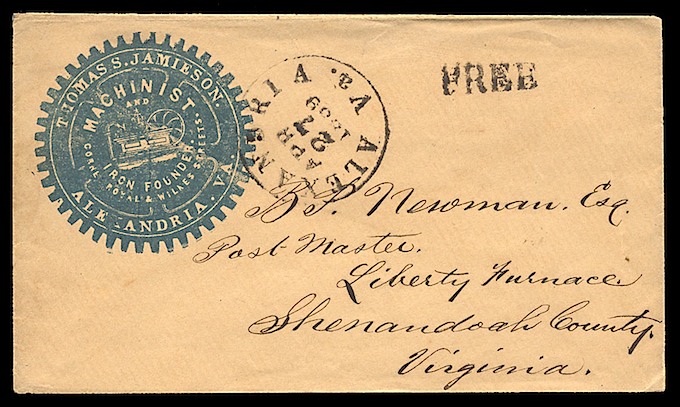 THOMAS S. JAMIESON.
MACHINIST
AND
IRON FOUNDER
CORNER ROYAL & WILKES STREETS.
ALEXANDRIA, VA.
ALEXANDRIA Va.
APR
27
1859
FREE
B. P. Newman. Esq.
Post Master.
Liberty Furnace
Shenandoah County.
Virginia.